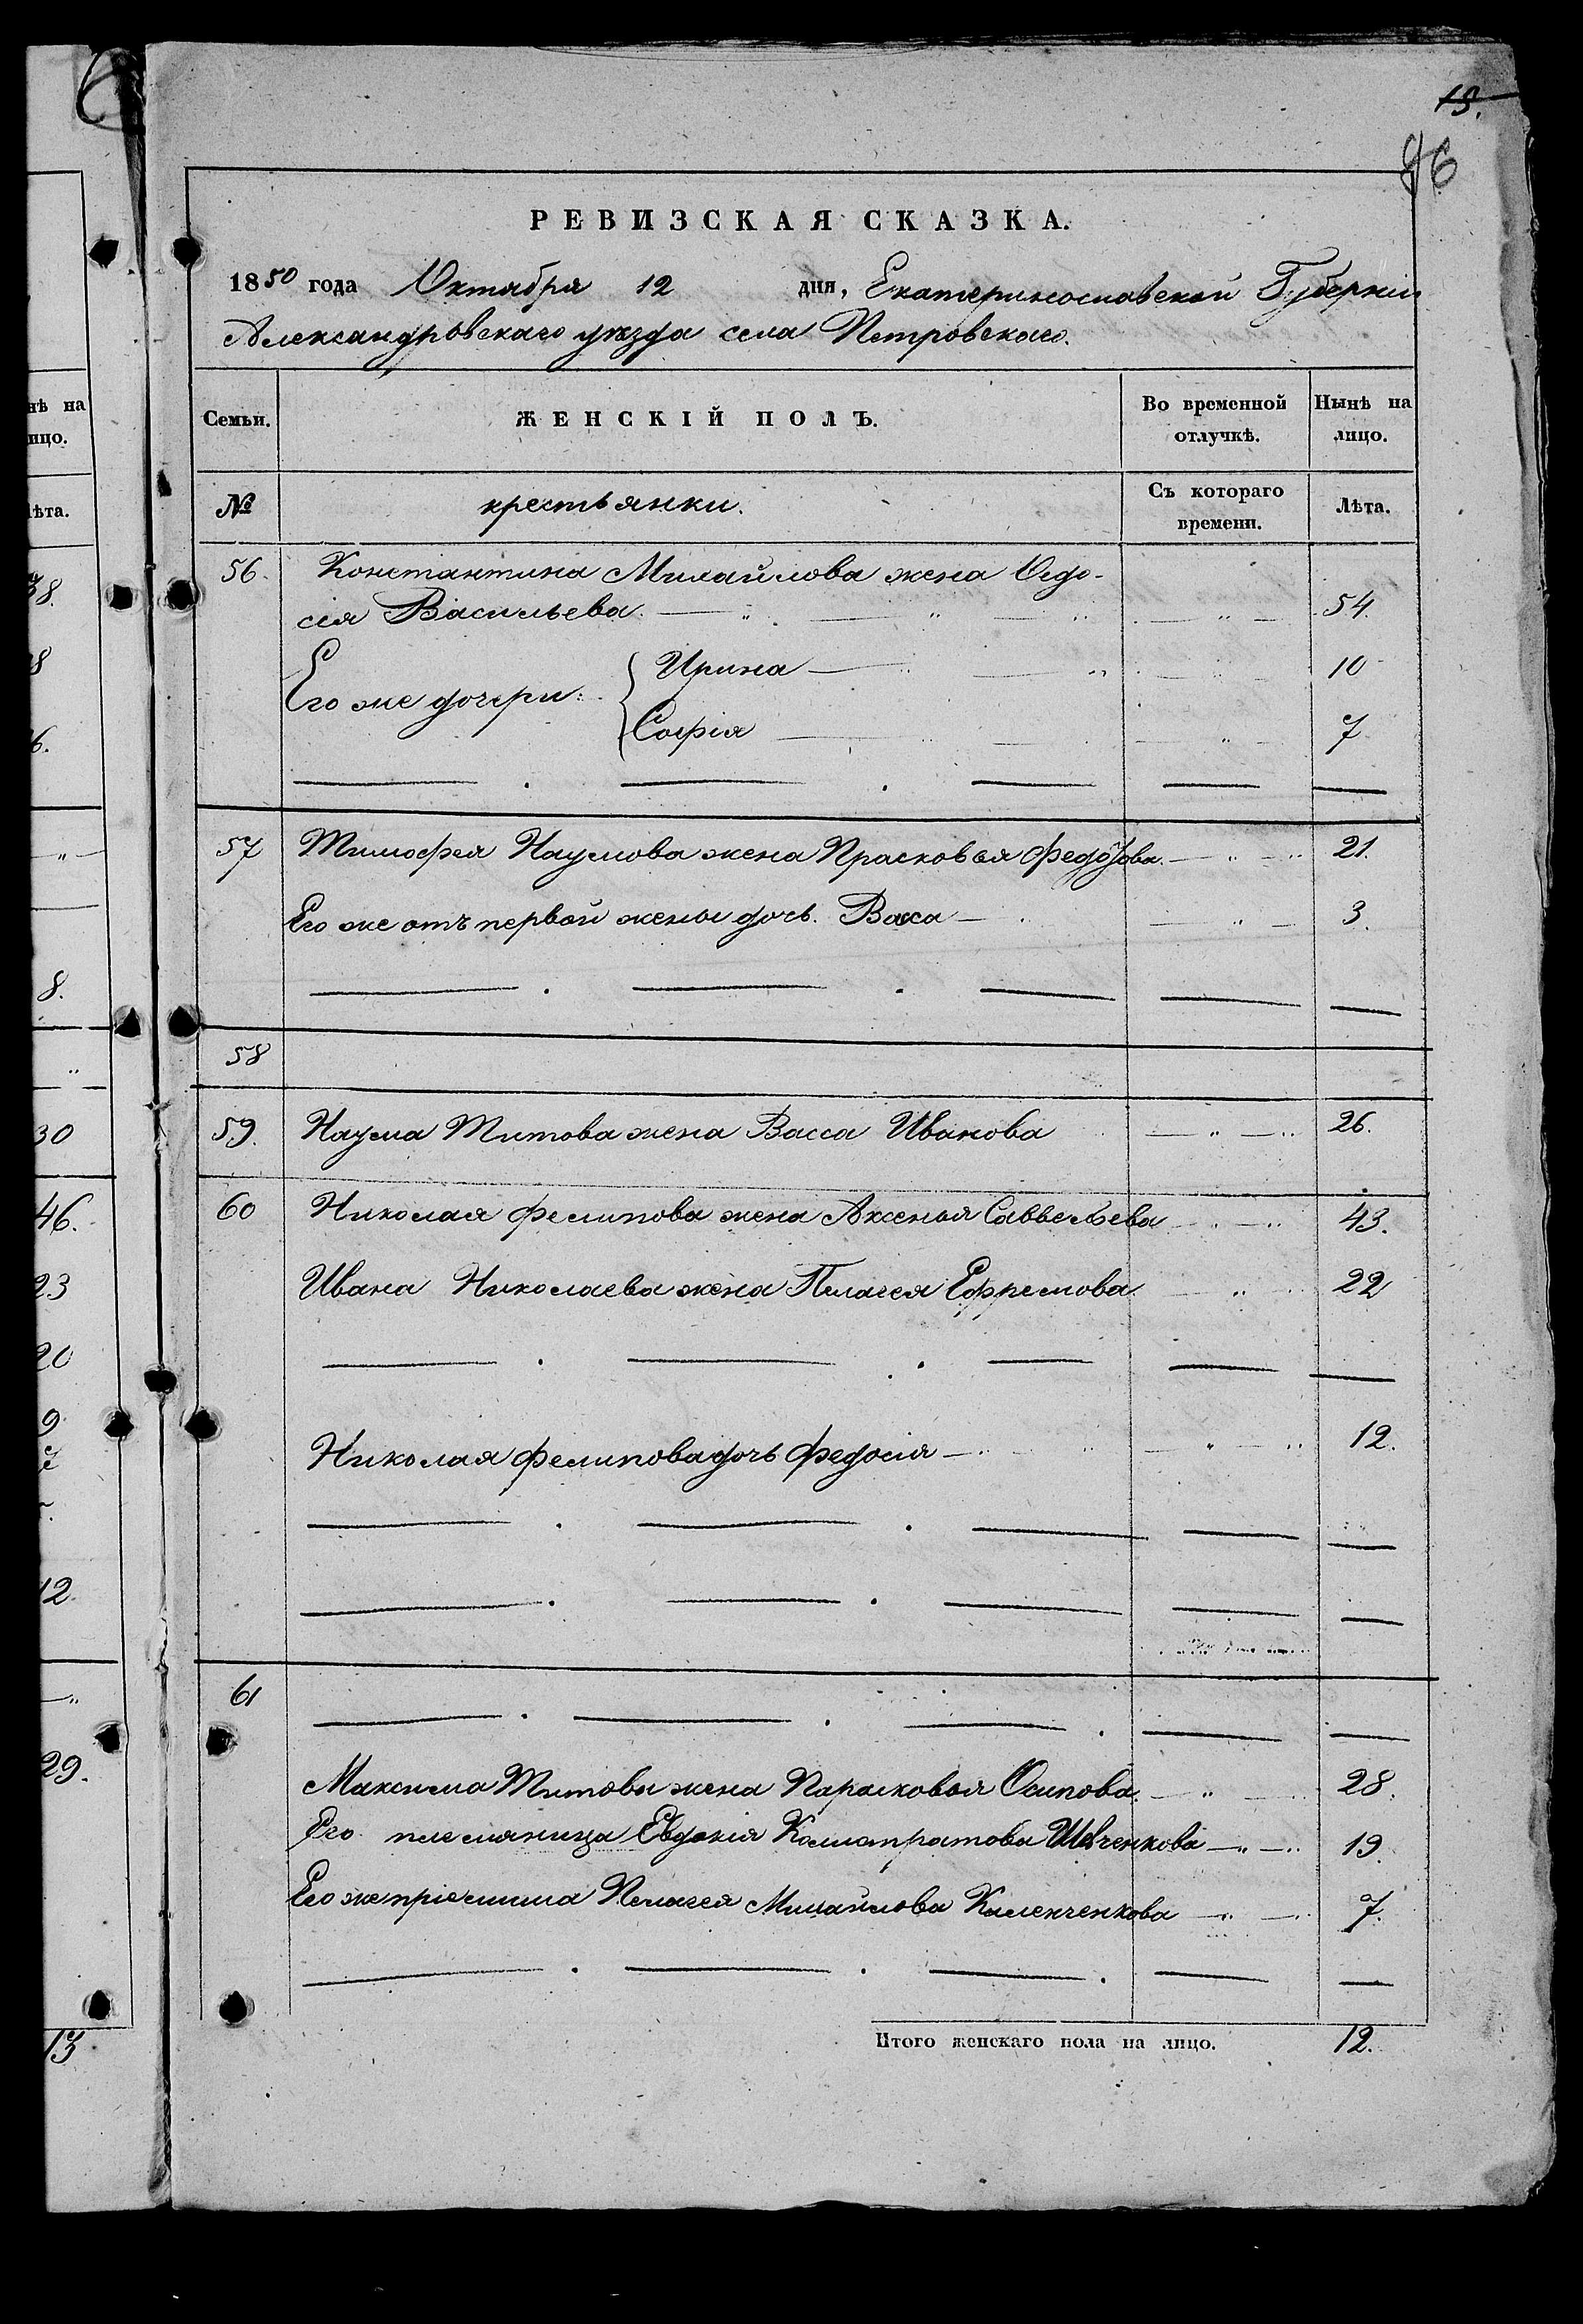 15.
86
нѣ на
ицо.
ѣта.
38.
8
6.
8.
30
46.
23
20
9
7
12.
29.
13
РЕВИЗСКАЯ СКАЗКА.
1850 года Октября 12 дня, Екатеринославской Губерніи
Александровскаго уѣзда села Петровскаго.
Семьи. ЖЕНСКІЙ ПОЛЪ. Во временной отлучкѣ. Нынѣ на лицо.
№ крестьянки. Съ котораго времени. Лѣта.
56. Константина Михайлова жена Ѳедо-
сія Васильева. 54.
Его же дочери: Ирина 10
Софія 7
57 Тимофея Наумова жена Прасковья Федорова. 21.
Его же отъ первой жены дочь. Васса 3.
58
59. Наума Титова жена Васса Иванова 26.
60 Николая Филипова жена Аксенья Саввельева 43.
Ивана Николаева жена Пелагея Ефремова 22
Николая Филипова дочь Федосія 12.
61
Максима Титова жена Парасковья Осипова. 28.
Его племяница Евдокія Калистратова Шевченкова 19.
Его же пріемыша Пелагея Михайлова Каленченкова 7.
Итого женскаго пола на лицо. 12.